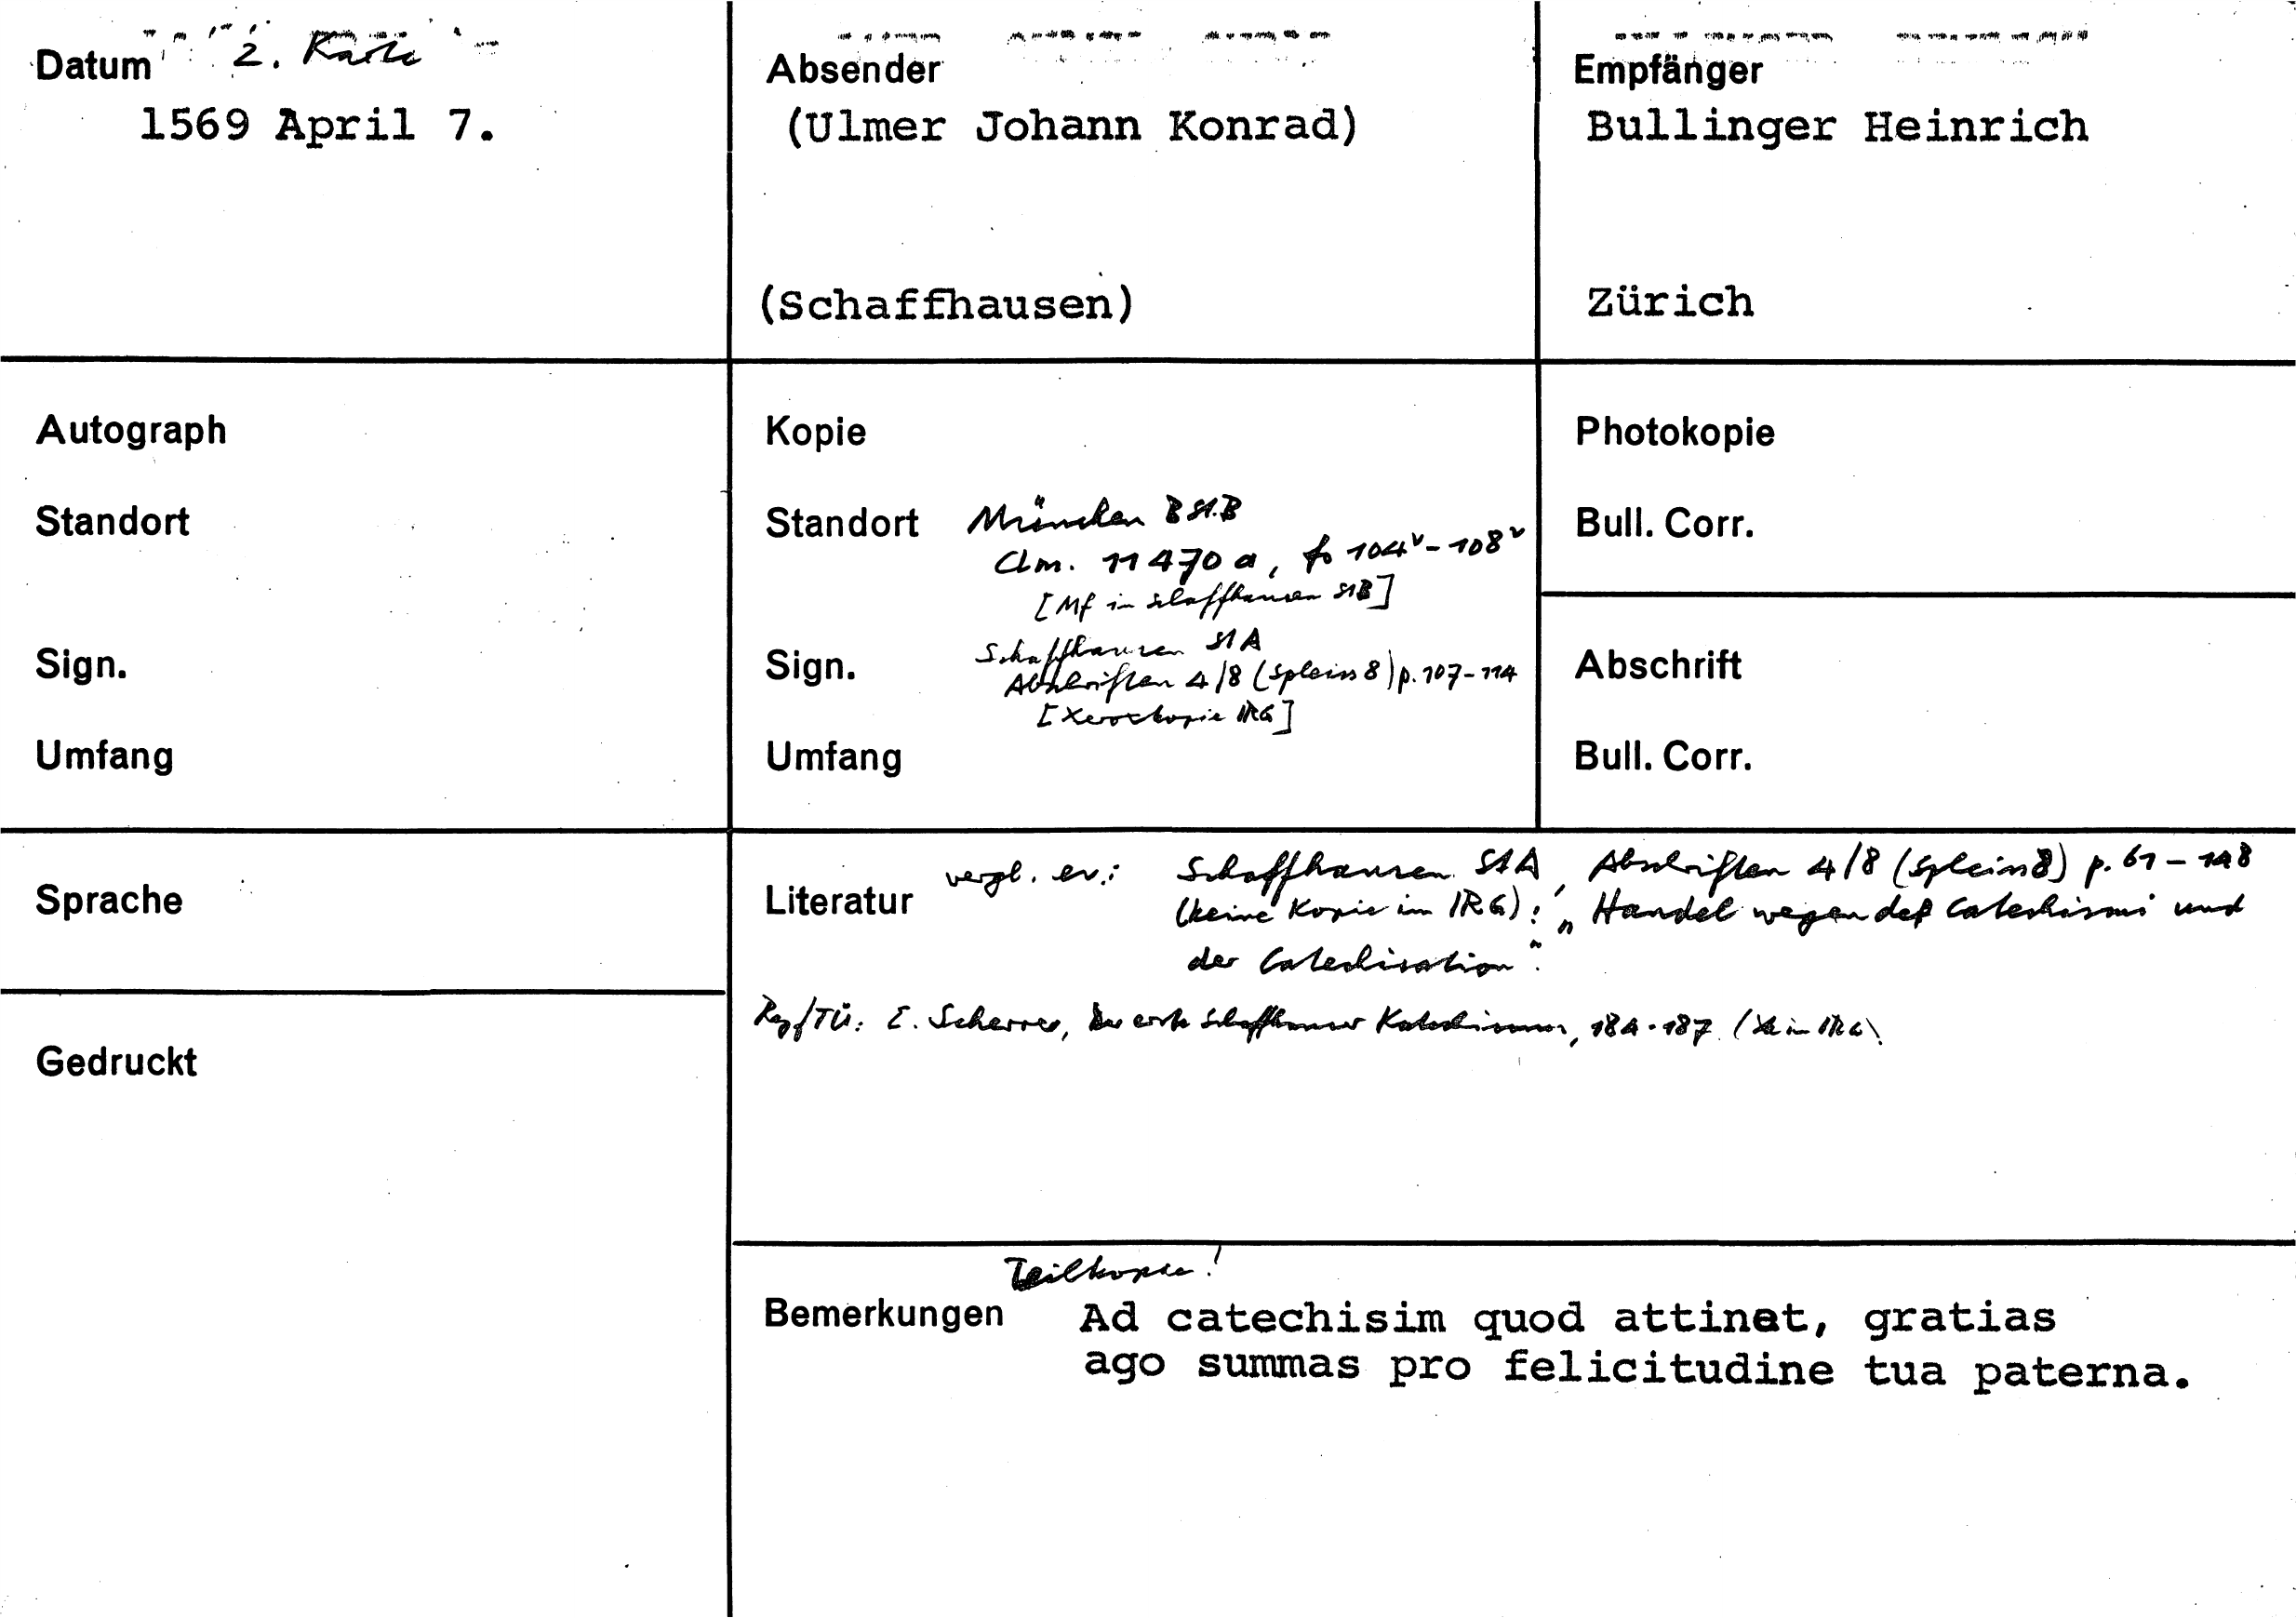 Datum 2. Karte
1569 April 7.
Absender
(Ulmer Johann Konrad)
(Schaffhausen)
Empfänger
Bullinger Heinrich
Zürich
Autograph
Standort
Sign.
Umfang
Kopie
Standort München BStB
Clm. 11470 a, fo 104v-108v
[Mf in Schaffhausen StB]
Sign. Schaffhausen StA
Abschriften 4/8 (Spleiss 8) p. 107-114
[Xerokopie IRG]
Umfang
Photokopie
Bull. Corr.
Abschrift
Bull. Corr.
Sprache
Gedruckt
Literatur vergl. ev.: Schaffhausen StA, Abschriften 4/8 (Spleiss 8) p. 61-148
(keine Kopie im IRG): „Handel wegen deß Catechismi und
der Catechisation".
Reg/TÜ: E. Scherrer, Der erste Schaffhauser Katechismus, 184-187 (Xk in IRG)
Teilkopie!
Bemerkungen Ad catechisim quod attinet, gratias
ago summas pro felicitudine tua paterna.